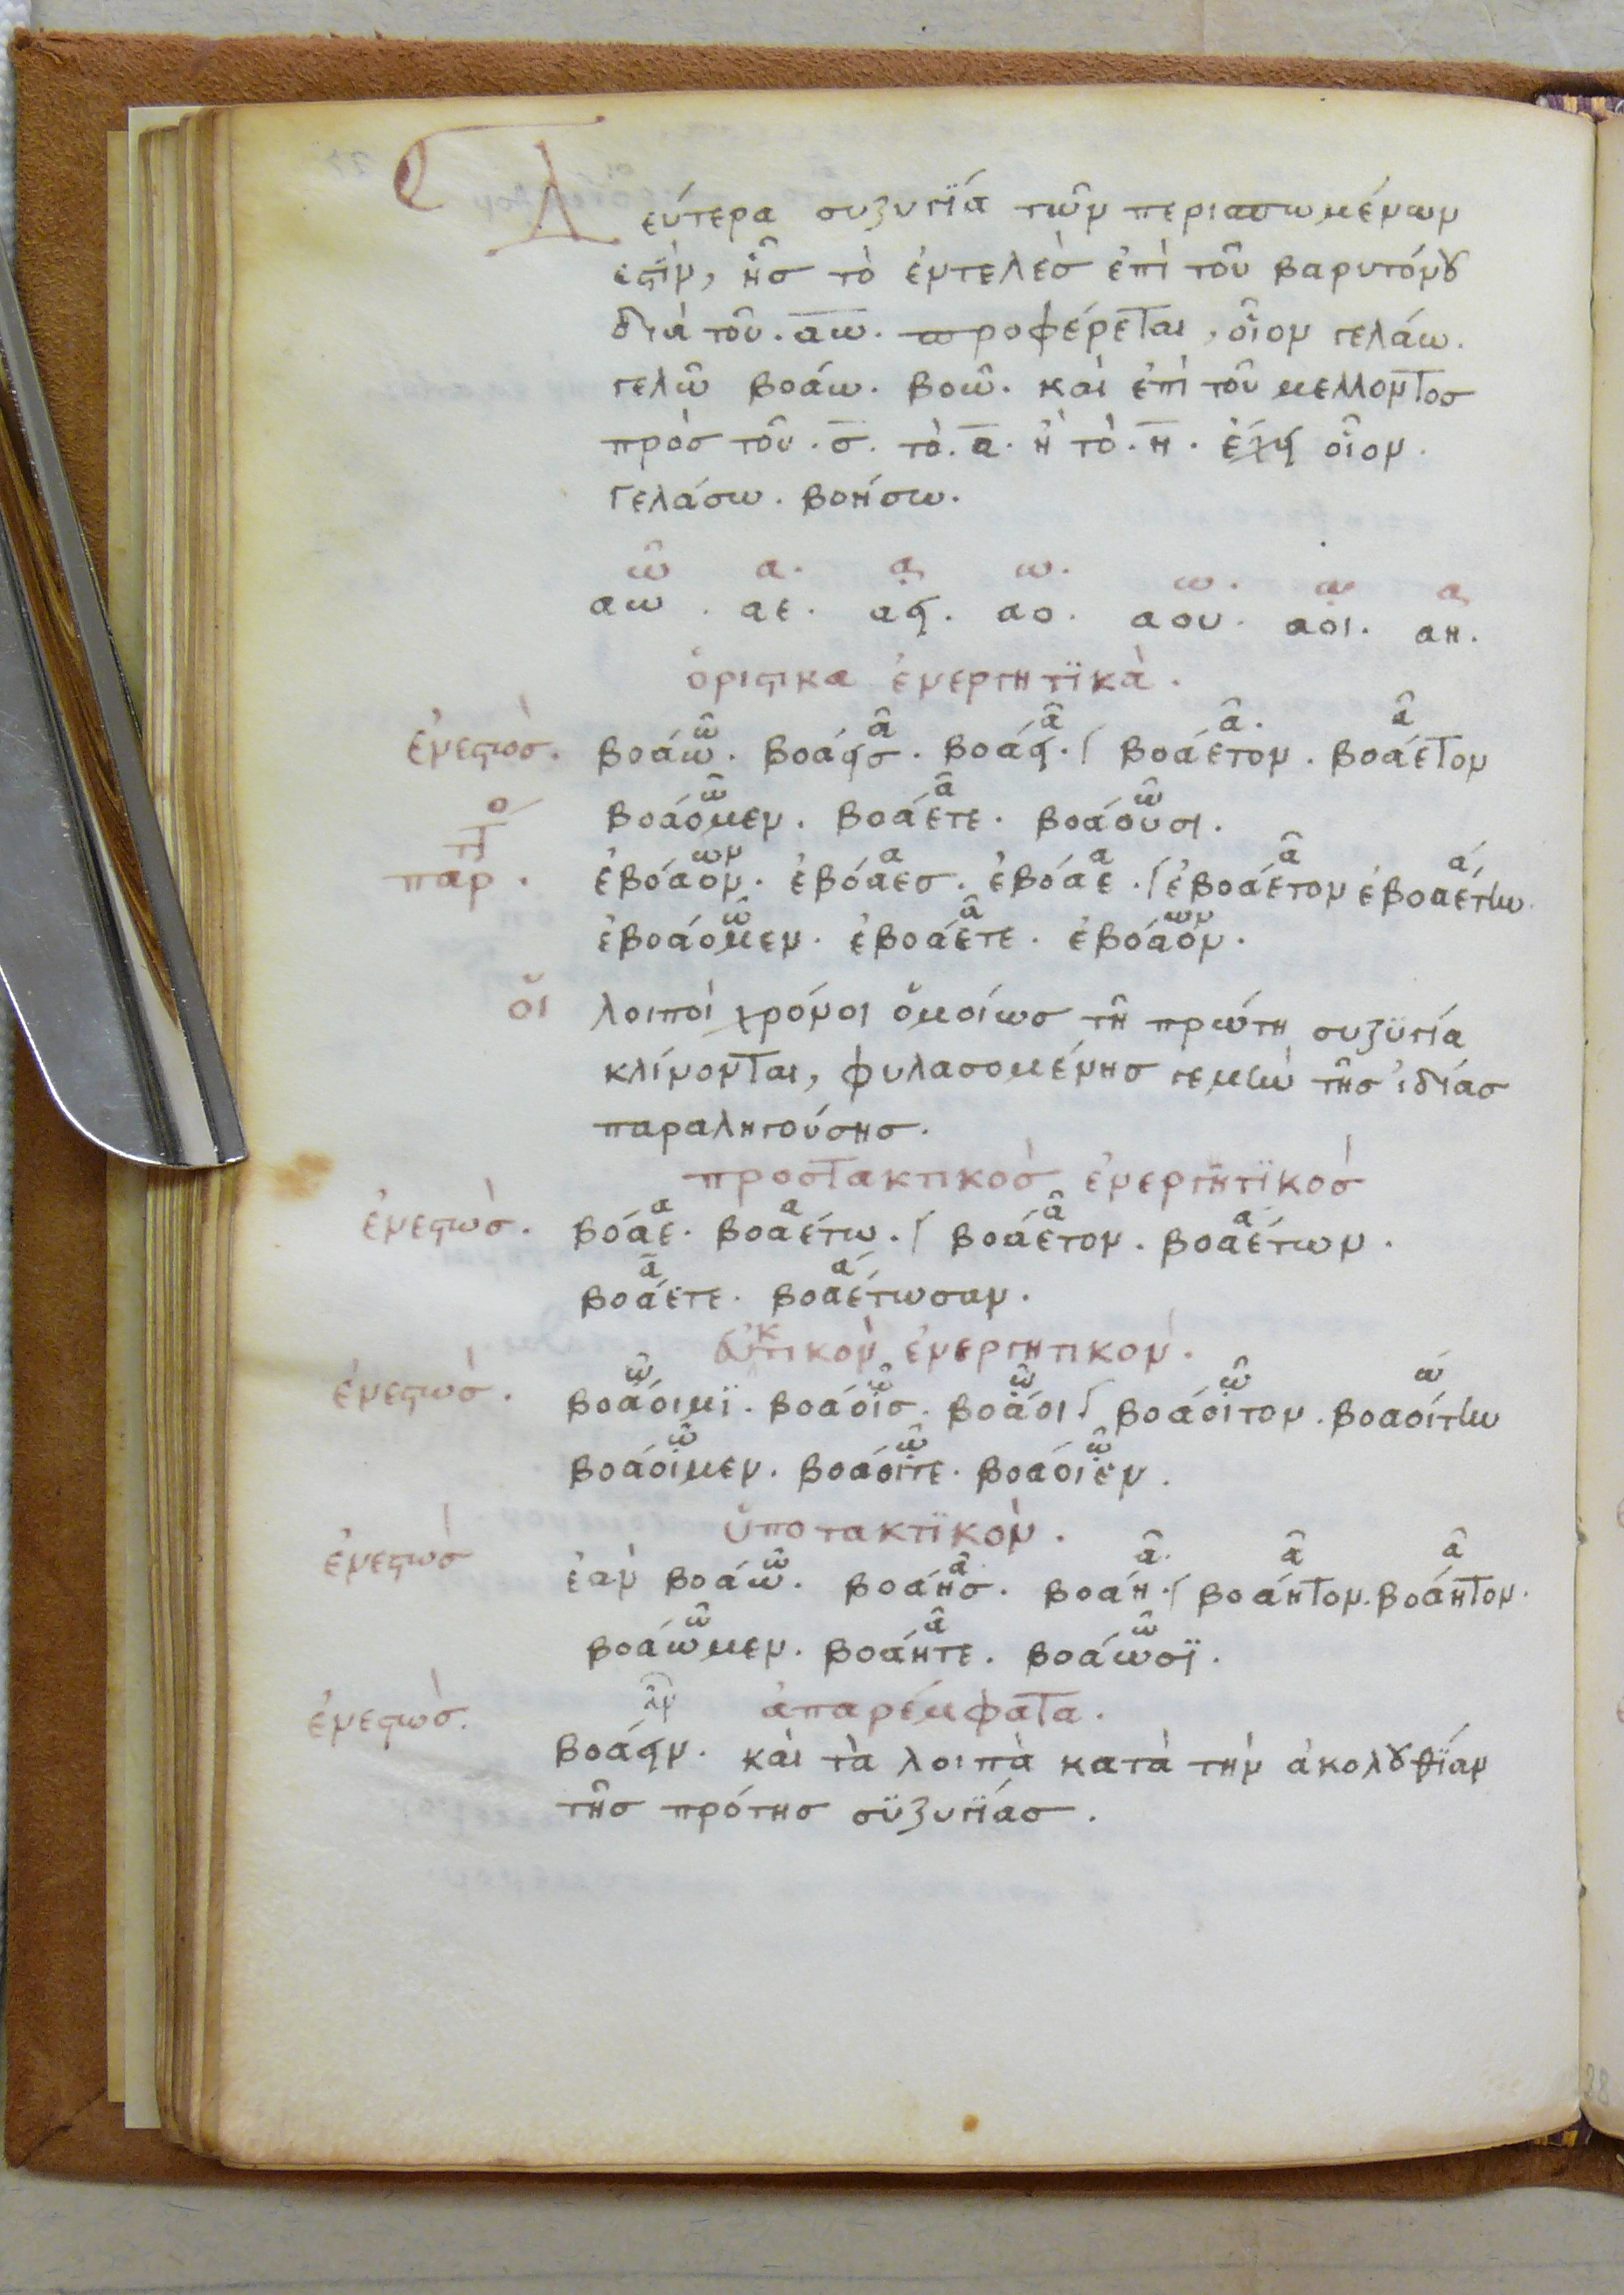 Δεύτερα συζυγΐα τῶν περισπωμένων
ἐστὶν, ἧς τὸ ἐντελὲς ἐπὶ τοῦ βαρυτόνου
διὰ τοῦ. αω. προφέρεται, οἷον γελάω.
γελῶ βοάω. βοῶ. καὶ ἐπὶ τοῦ μελλοντος
πρὸς τοῦ. σ. τὸ. α. ἢ τὸ. η. ἔχει οἷον.
γελάσω. βοήσω.
ῶ α. ᾳ ω. ω. ῳ ᾳ
αω. αε. αει. αο. αου. αοι. αη.
ὁριστικα ἐνεργητϊκὰ.
ῶ ᾶ ᾶ ᾶ. ᾶ
ἐνεστὼς. βοάω. βοάεις. βοάει. βοάετον. βοάετον
ῶ ᾶ ῶ
βοάομεν. βοάετε. βοάουσι.
ων α α ᾶ ά
ὁ παρ. ἐβόαον. ἐβόαες. ἐβόαε. ἐβοάετον ἐβοαέτην
ῶ ᾶ ων
ἐβοάομεν. ἐβοάετε. ἐβόαον.
ὁι λοιποὶ χρόνοι ὁμοίως τῆ πρώτη συζϋγία
κλίνονται, φυλασομένης γεμὴν τῆς ἰδίας
παραληγούσης.
προστακτικὸς ἐνεργητϊκὸς
α α ᾶ α
ἐνεστὼς. βόαε. βοαέτω. βοάετον. βοαέτων.
ᾶ ά
βοάετε. βοαέτωσαν.
ἐυκτικὸν ἐνεργητικον.
ῶ ῶ ῶ ῶ ώ
ἐνεστὼς. βοάοιμϊ. βοάοις. βοάοι βοάοιτον. βοαοίτην
ῶ ῶ ῶ
βοάοιμεν. βοάοιτε. βοάοιεν.
ὑποτακτϊκὸν.
ῶ ᾶ ᾶ. ᾶ ᾶ
ἐνεστὼς ἐὰν βοάω. βοάης. βοάη. βοάητον. βοάητον.
ῶ ᾶ ῶ
βοάωμεν. βοάητε. βοάωσϊ.
ᾶν ἀπαρέμφατα.
ἐνεστὼς. βοάειν. κὰι τὰ λοιπὰ κατὰ τὴν ἀκολουθΐαν
τῆς πρότης σϋζυγΐας.